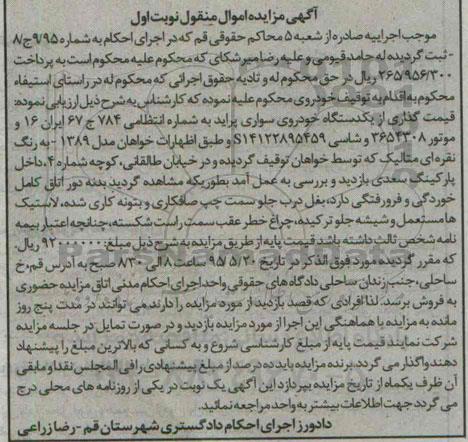 آگهی مزایده اموال منقول نوبت اول
موجب اجراییه صادره از شعبه ۵ محاکم حقوقی قم که در اجرای احکام به شماره ۹/۹۵ج۸
- ثبت گردیده له حامد قیومی و علیه رضا میرشکای که محکوم علیه محکوم است به پرداخت
۲۶۵/۹۵۶/۳۰۰ ریال در حق محکوم له و تادیه حقوق اجرائی که محکوم له در راستای استیفاء
محکوم به اقدام به توقیف خودروی محکوم علیه نموده که کارشناس به شرح ذیل ارزیابی نموده:
قیمت گذاری از یکدستگاه خودروی سواری پراید به شماره انتظامی ۷۸۴ ج ۶۷ ایران ۱۶ و
موتور ۳۶۵۴۳۰۸ و شاسی S۱۴۱۲۲۸۹۵۴۵۹ و طبق اظهارات خواهان مدل ۱۳۸۹ - به رنگ
نقره ای متالیک که توسط خواهان توقیف گردیده و در خیابان طالقانی، کوچه شماره ۴، داخل
پارکینگ سعدی بازدید و بررسی به عمل آمد بطوریکه مشاهده گردید بدنه دور اتاق کامل
خوردگی و فرورفتگی دارد، بغل درب جلو سمت چپ صافکاری و بتونه کاری شده، لاستیک
ها مستعمل و شیشه جلو ترکیده، چراغ خطر عقب سمت راست شکسته، چنانچه اعتبار بیمه
نامه شخص ثالث داشته باشد قیمت پایه از طریق مزایده به شرح ذیل مبلغ: ۹۲۰۰۰۰۰۰ ریال
که مقرر گردیده مورد فوق الذکر در تاریخ ۹۵/۵/۲۰ ساعت ۸ الی ۸۳۰ صبح به آدرس قم، خ
ساحلی، جنب زندان ساحلی دادگاه های حقوقی واحد اجرای احکام مدنی اتاق مزایده حضوری
به فروش برسد. لذا افرادی که قصد بازدید از مورد مزایده را دارند می توانند در مدت پنج روز
مانده به مزایده با هماهنگی این اجرا از مورد مزایده بازدید و در صورت تمایل در جلسه مزایده
شرکت نمایند قیمت پایه از مبلغ کارشناسی شروع و به کسانی که بالاترین مبلغ را پیشنهاد
دهند واگذار می گردد. برنده مزایده باید ده درصد از مبلغ پیشنهادی را فی المجلس نقدا و مابقی
آن ظرف یکماه از تاریخ مزایده بپردازد این آگهی یک نوبت در یکی از روزنامه های محلی درج
می گردد جهت اطلاعات بیشتر به واحد مراجعه نمائید.
دادورز اجرای احکام دادگستری شهرستان قم - رضا زراعی